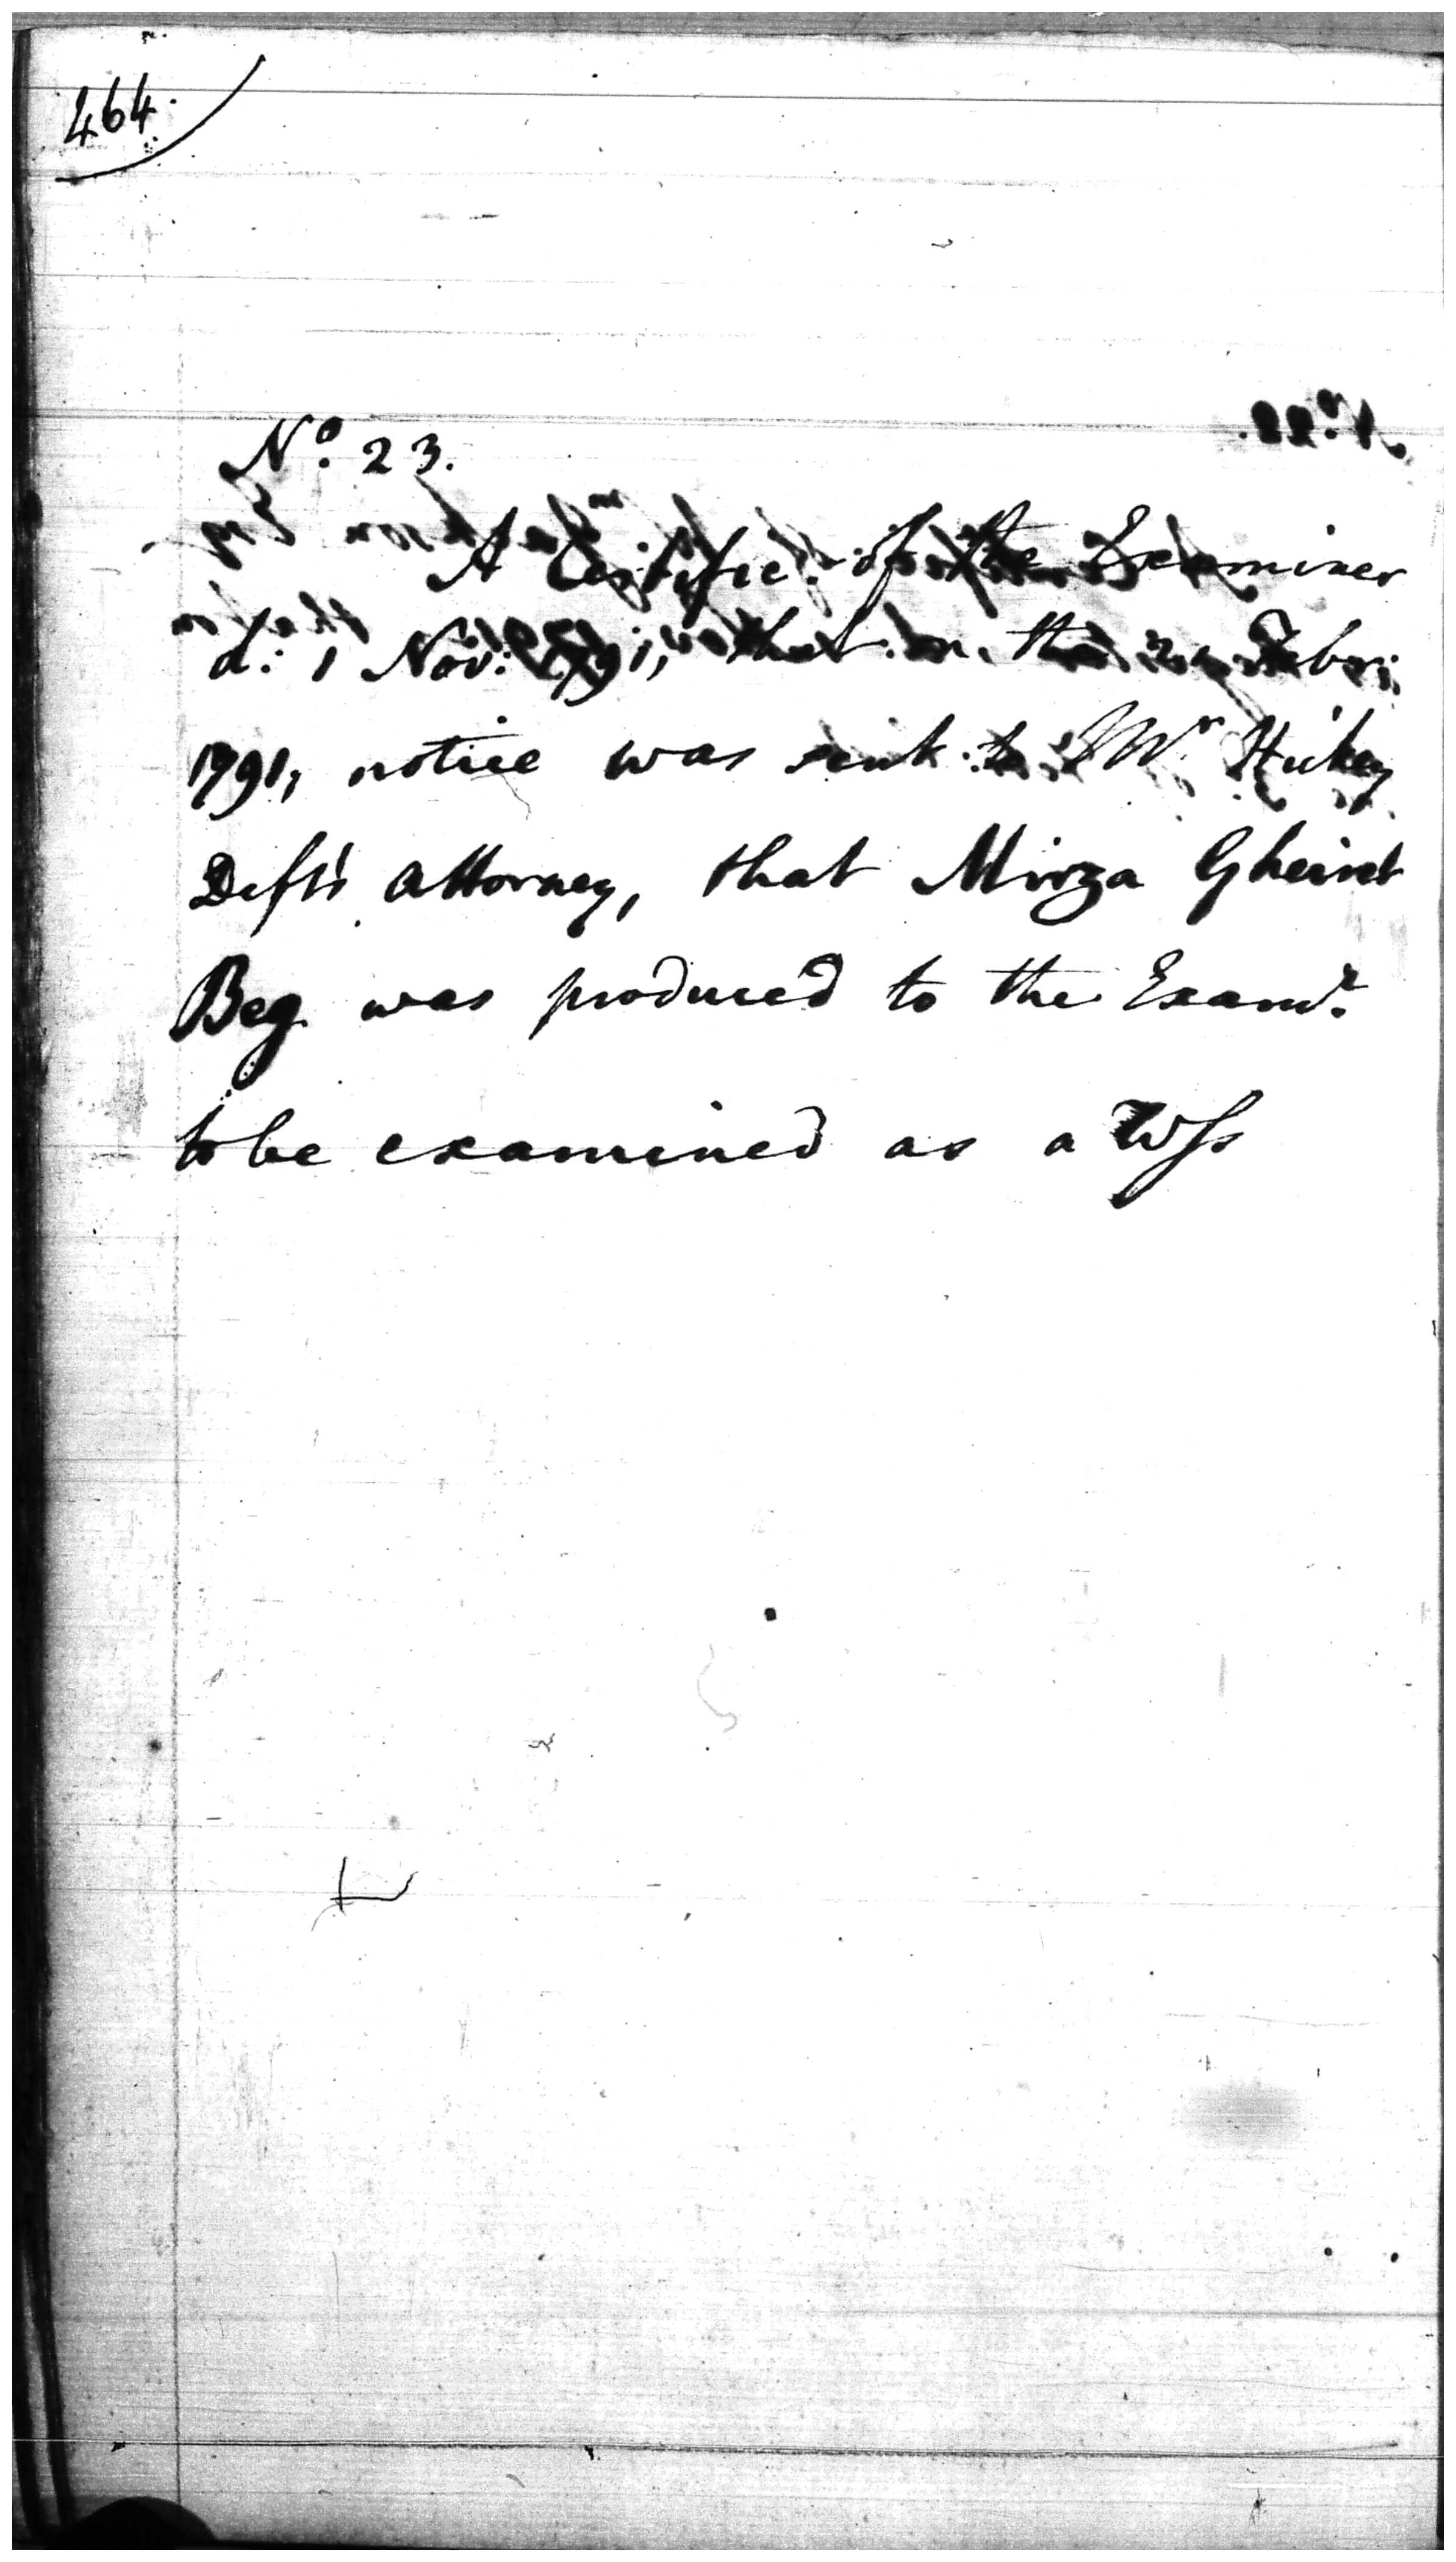 464.
No. 23.
A Certific. of the Examiner
d: 1 Nov: 1791, that on the
1791, notice was sent to Mr Hickey
Defts Attorney, that Mirza
Beg was produced to the Examr.
to be examined as a Wss